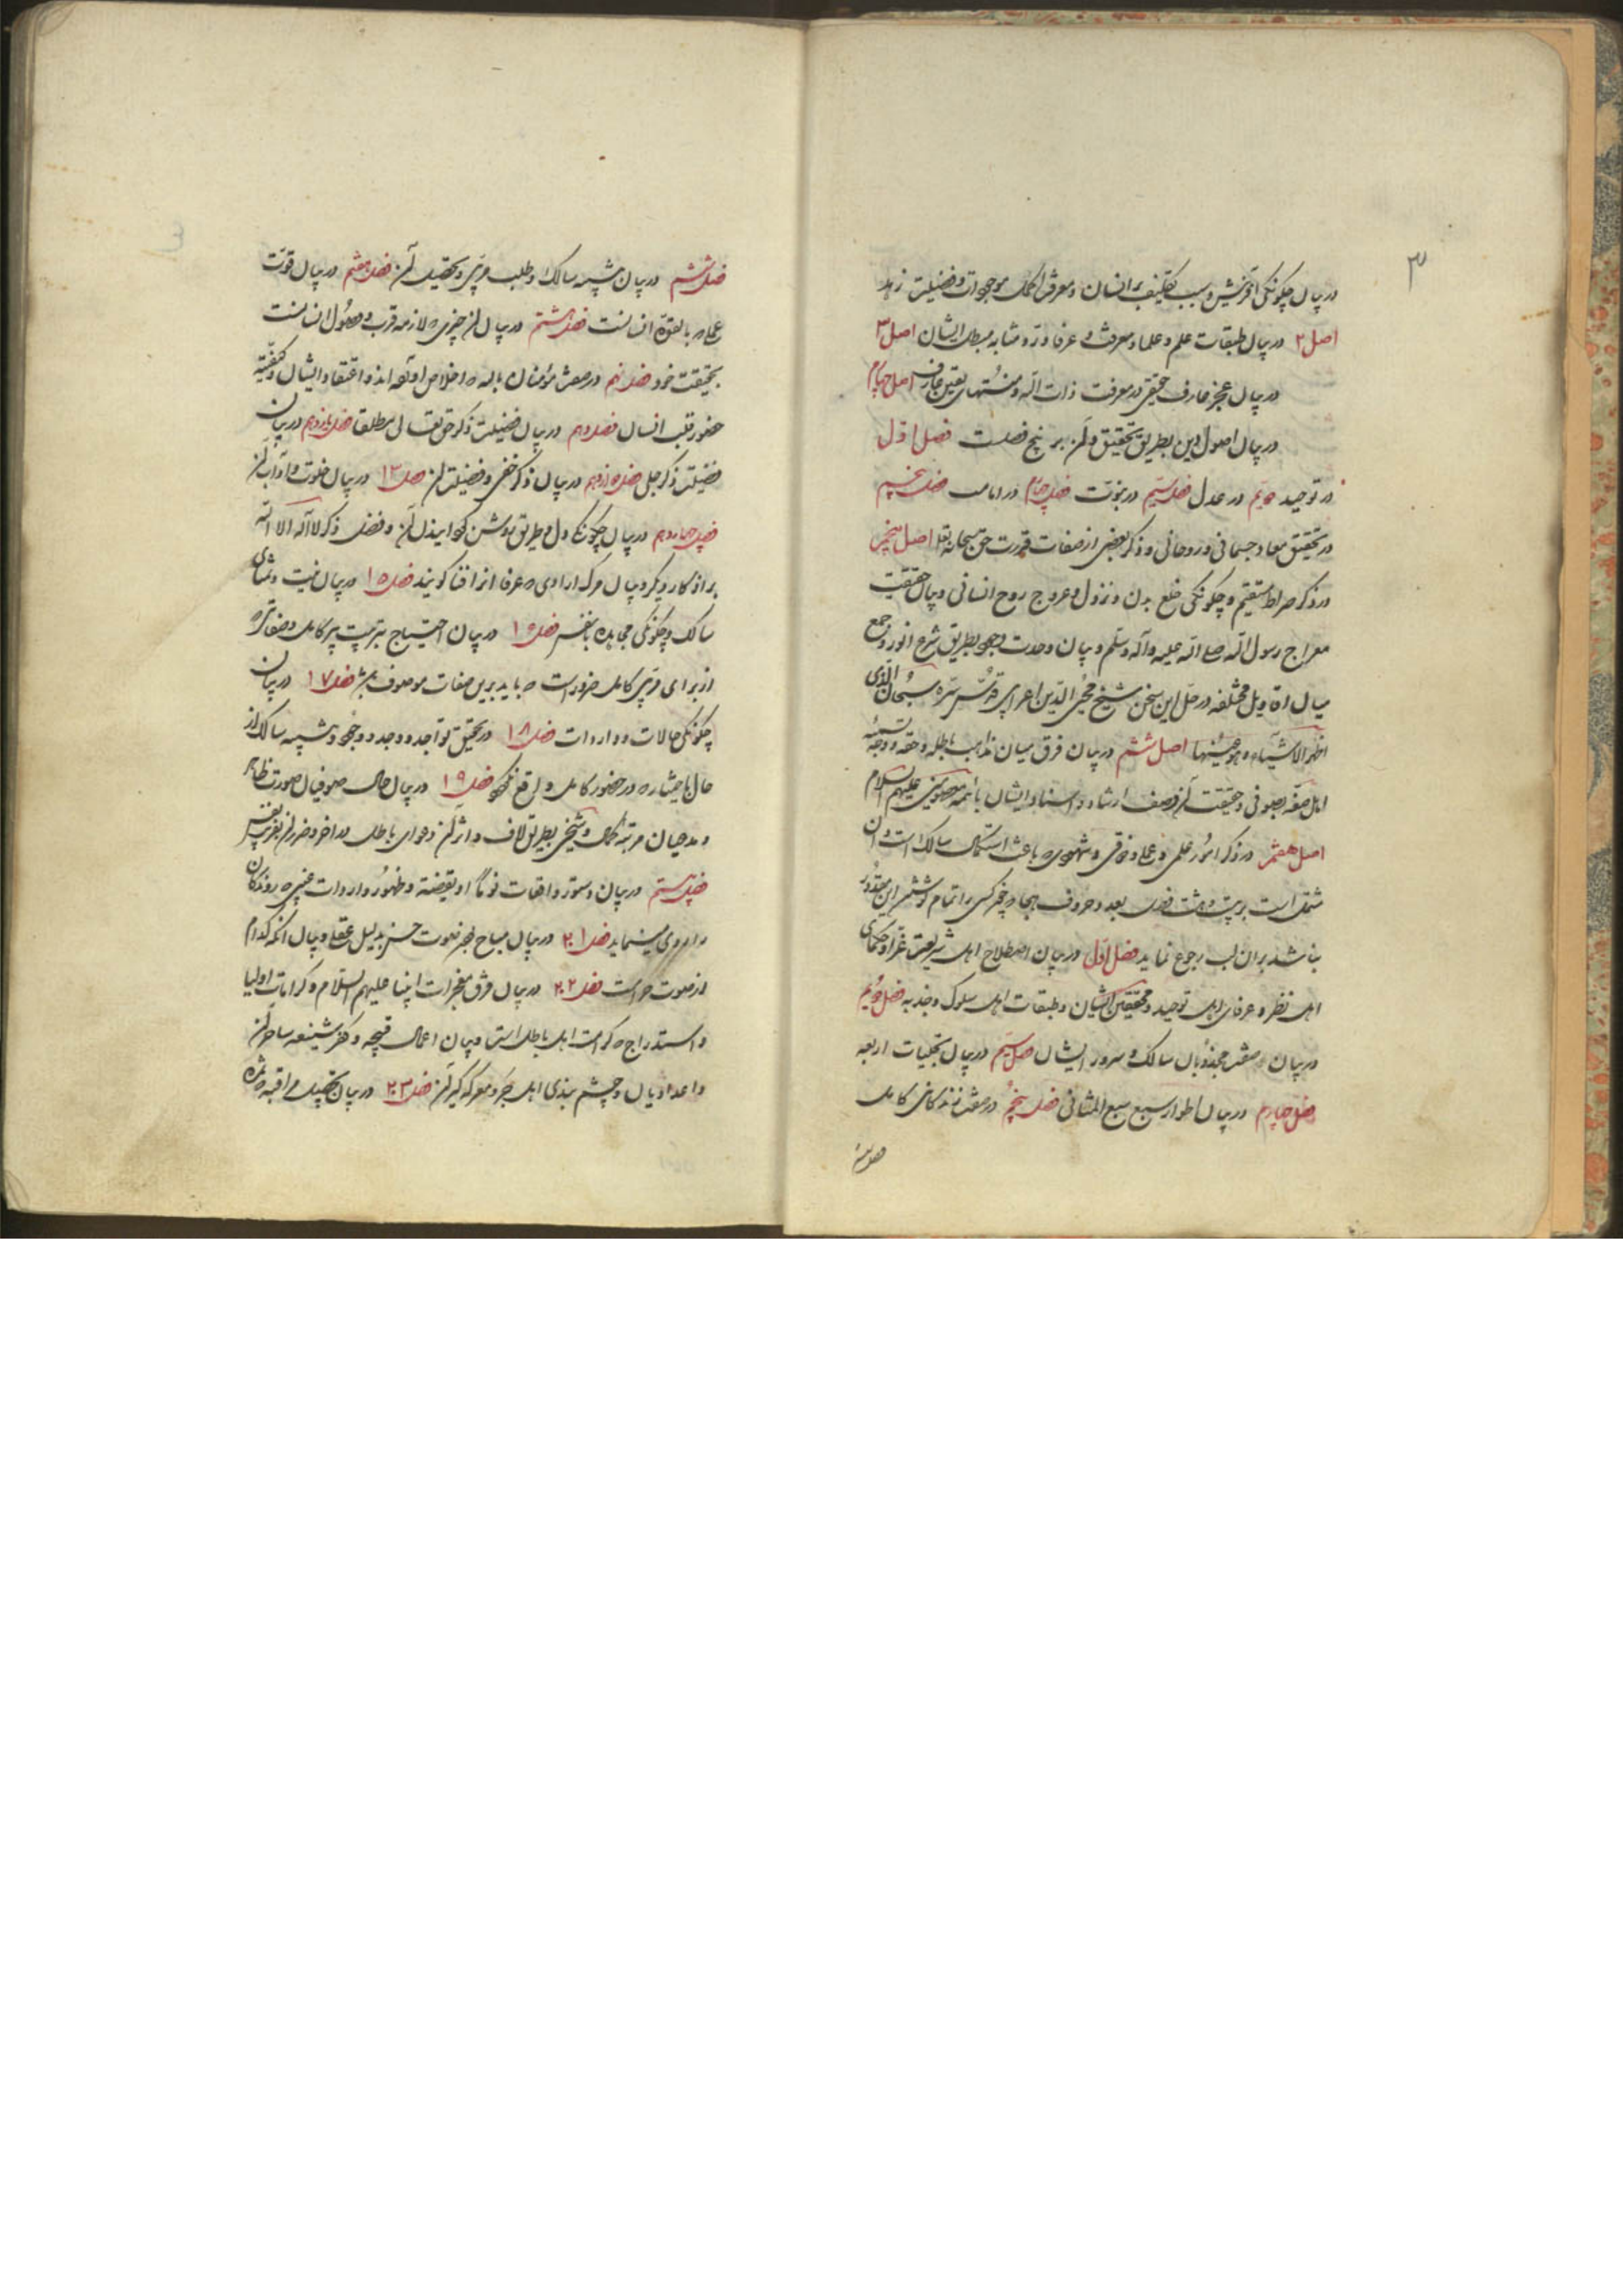 ۳
در بیان چگونگی آفرینش و سبب تکلیف بر انسان و معرفت اکمل موجودات و فضیلت زهد
اصل ۲ در بیان طبقات علم و علما و معرفت و عرفا و رد متشابه مبطل ایشان اصل ۳
در بیان عجز عارف حقیقی در معرفت ذات اله و منتهای یقین عارف اصل چهارم
در بیان اصول دین بطریق تحقیق و آن بر پنج فصلست فصل اول
در توحید دویم در عدل فصل سیم در نبوت فصل چهارم در امامت فصل پنجم
در تحقیق معاد جسمانی و روحانی و ذکر بعضی از صفات قدرت حق سبحانه تعالی اصل پنجم
در ذکر صراط مستقیم و چگونگی خلع بدن و نزول و عروج روح انسانی و بیان حقیقت
معراج رسول الله صلی الله علیه وآله وسلم و بیان وحدت وجود بطریق شرع انور و جمع
میان اقاویل مختلفه در حل این سخن شیخ محیی الدین اعرابی قدس سره سبحان الذی
اظهر الاشیاء و هو عینها اصل ششم در بیان فرق میان مذاهب باطله و حقه و وجه تسمیه
اهل صفه بصوفی و حقیقت آن وصف ارشاد و اسناد ایشان با ائمه معصومین علیهم السلام
اصل هفتم در ذکر امور علمی و عملی و ذوقی و شهودی که باعث استکمال سالک است و آن
مشتمل است بر بیست و هشت فصل بعدد حروف هجا و هر کسی را تمام کوشش این مقدور
نباشد بران لب رجوع نماید فصل اول در بیان اصطلاح اهل شریعت غرا و حکمای
اهل نظر و عرفای اهل توحید و محققین ایشان و طبقات اهل سلوک و جذبه فصل دویم
در بیان صفت مجذوبان سالک و سرور ایشان فصل سیم در بیان تجلیات اربعه
فصل چهارم در بیان اطوار سبع سبع المثانی فصل پنجم در صفت زندگانی کامل
فصل ششم
فصل ششم در بیان تشبیه سالک و طلب مربی و تحصیل آن فصل هفتم در بیان قوت
عماره بالقوة انسانست فصل هشتم در بیان آن چیزی که لازمه قرب و وصول انسانست
بحقیقت خود فصل نهم در صفت مؤمنان بالله که اخلاص او تعالی اند و اعتقاد ایشان و کیفیة
حضور قلب انسان فصل دهم در بیان فضیلت ذکر حق تعالی مطلقا فصل یازدهم در بیان
فضیلت ذکر جلی فصل دوازدهم در بیان ذکر خفی و فضیلت آن فصل ۱۳ در بیان خلوت و آداب آن
فصل چهاردهم در بیان چگونگی دل و طریق روشن کردانیدن آن و فضل ذکر لا اله الا الله
بر اذکار دیگر و بیان مرکه ارادی که عرفا انرا فنا گویند فصل ۱۵ در بیان نیت و تمنای
سالک و چگونگی مجاهده با نفس فصل ۱۶ در بیان احتیاج بتربیت پیر کامل و صفاتی که
از برای مربی کامل ضرور است که باید بدین صفات موصوف باشد فصل ۱۷ در بیان
چگونگی حالات و واردات فصل ۱۸ در تحقیق تواجد و وجد و وجود و تشبیه سالک از
حال با حیثیتی که در حضور کامل ولی واقع شود فصل ۱۹ در بیان حال صوفیان صورت ظاهر
و مدعیان مرتبه کمال و شیخی بطریق لاف و اثر آن دعوای باطل و ضرر آن بغیر و بنفس
فصل بیستم در بیان دستور واقعات نوماً او یقضة و ظهور واردات غیبی که روندکان
راه روی مینماید فصل ۲۱ در بیان مباح بودن صوت حسن بدلیل عقل و بیان آنکه کدام
از صوت حرامست فصل ۲۲ در بیان فرق معجزات انبیا علیهم السلام و کرامات اولیا
و استدراج که کرامت اهل باطل است و بیان اعمال قبیحه و کفر شنیعه ساحران
و اعدادیان و چشم بندی اهل و معرکه گیران فصل ۲۳ در بیان تفصیل مراقبه که ثمره